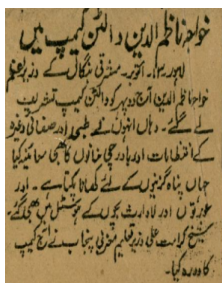 خواجہ ناظم الدین والٹن کیمپ میں
لاہور ۳۰۔ اکتوبر۔ مشرقی بنگال کے وزیر اعظم
خواجہ ناظم الدین آج دوپہر کو والٹن کیمپ تشریف
لے گئے۔ وہاں انہوں نے طبی اور صفائی وغیرہ
کے انتظامات اور باورچی خانوں کا بھی معائنہ کیا
جہاں پناہ گزینوں کے لئے کھانا پکتا ہے۔ اور
عورتوں اور لاوارث بچوں کے ہوسٹل میں بھی گئے۔
شیخ کرامت علی وزیر تعلیم مغربی پنجاب نے آج کیمپ
کا دورہ کیا۔